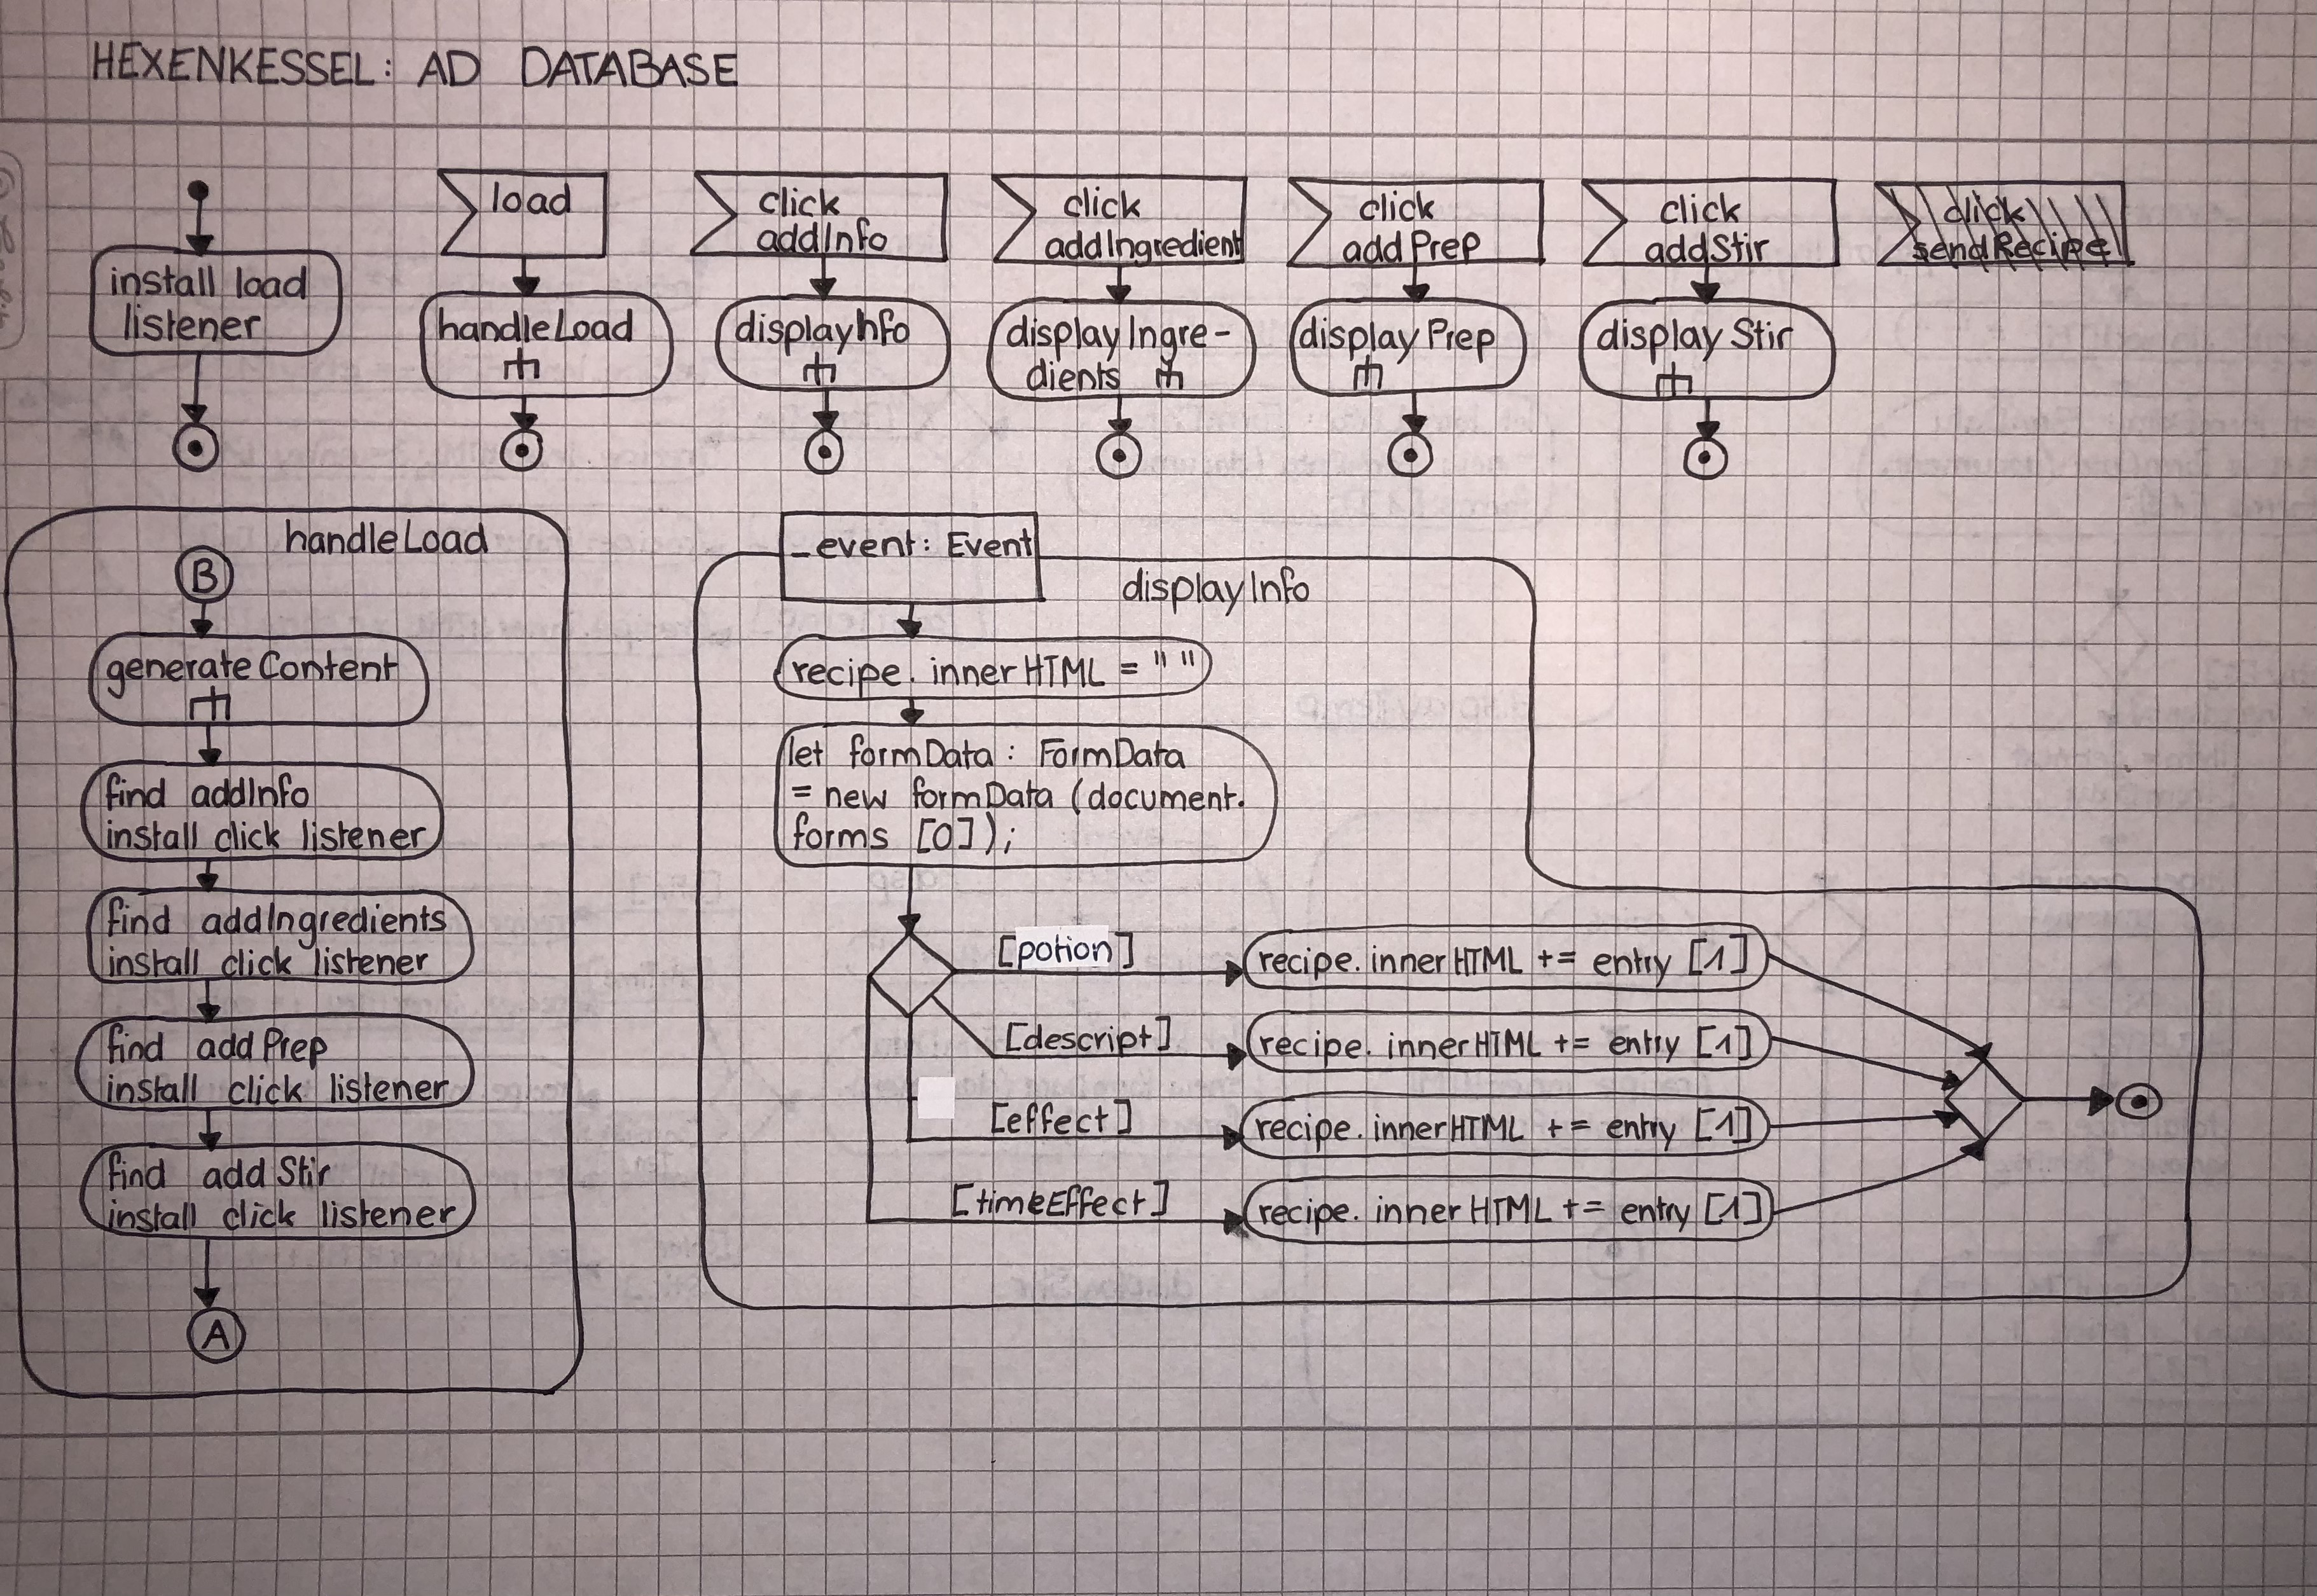 HEXENKESSEL: AD DATABASE
install load
listener
load
handleLoad
click
addInfo
displayInfo
click
addIngredient
displayIngre-
dients
click
addPrep
displayPrep
click
addStir
displayStir
click
sendRecipe
handleLoad
B
generateContent
find addInfo
install click listener
find addIngredients
install click listener
find addPrep
install click listener
find addStir
install click listener
A
_event: Event
displayInfo
recipe.innerHTML = " "
let formData: FormData
= new formData (document.
forms [0]);
[potion]
recipe.innerHTML += entry [1]
[descript]
recipe.innerHTML += entry [1]
[effect]
recipe.innerHTML += entry [1]
[timeEffect]
recipe.innerHTML += entry [1]